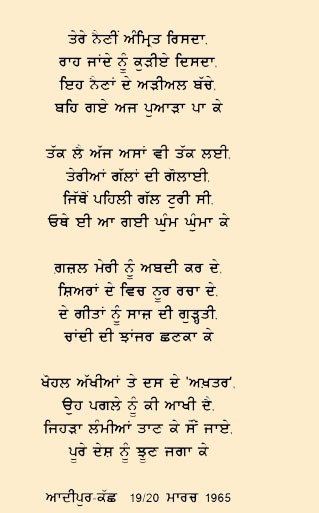 ਤੇਰੇ ਨੈਣੀਂ ਅੰਮ੍ਰਿਤ ਰਿਸਦਾ,
ਰਾਹ ਜਾਂਦੇ ਨੂੰ ਕੁੜੀਏ ਦਿਸਦਾ,
ਇਹ ਨੈਣਾਂ ਦੇ ਅੜੀਅਲ ਬੱਚੇ,
ਬਹਿ ਗਏ ਅਜ ਪੁਆੜਾ ਪਾ ਕੇ
ਤੱਕ ਲੈ ਅੱਜ ਅਸਾਂ ਵੀ ਤੱਕ ਲਈ,
ਤੇਰੀਆਂ ਗੱਲਾਂ ਦੀ ਗੋਲਾਈ,
ਜਿੱਥੋਂ ਪਹਿਲੀ ਗੱਲ ਟੁਰੀ ਸੀ,
ਓਥੇ ਈ ਆ ਗਈ ਘੁੰਮ ਘੁੰਮਾ ਕੇ
ਗ਼ਜ਼ਲ ਮੇਰੀ ਨੂੰ ਅਬਦੀ ਕਰ ਦੇ,
ਸ਼ਿਅਰਾਂ ਦੇ ਵਿਚ ਨੂਰ ਰਚਾ ਦੇ,
ਦੇ ਗੀਤਾਂ ਨੂੰ ਸਾਜ਼ ਦੀ ਗੁੜ੍ਹਤੀ,
ਚਾਂਦੀ ਦੀ ਝਾਂਜਰ ਛਣਕਾ ਕੇ
ਖੋਹਲ ਅੱਖੀਆਂ ਤੇ ਦਸ ਦੇ 'ਅਖ਼ਤਰ',
ਉਹ ਪਗਲੇ ਨੂੰ ਕੀ ਆਖੀ ਦੈ,
ਜਿਹੜਾ ਲੰਮੀਆਂ ਤਾਣ ਕੇ ਸੌਂ ਜਾਏ,
ਪੂਰੇ ਦੇਸ਼ ਨੂੰ ਝੂਣ ਜਗਾ ਕੇ
ਆਦੀਪੁਰ-ਕੱਛ 19/20 ਮਾਰਚ 1965